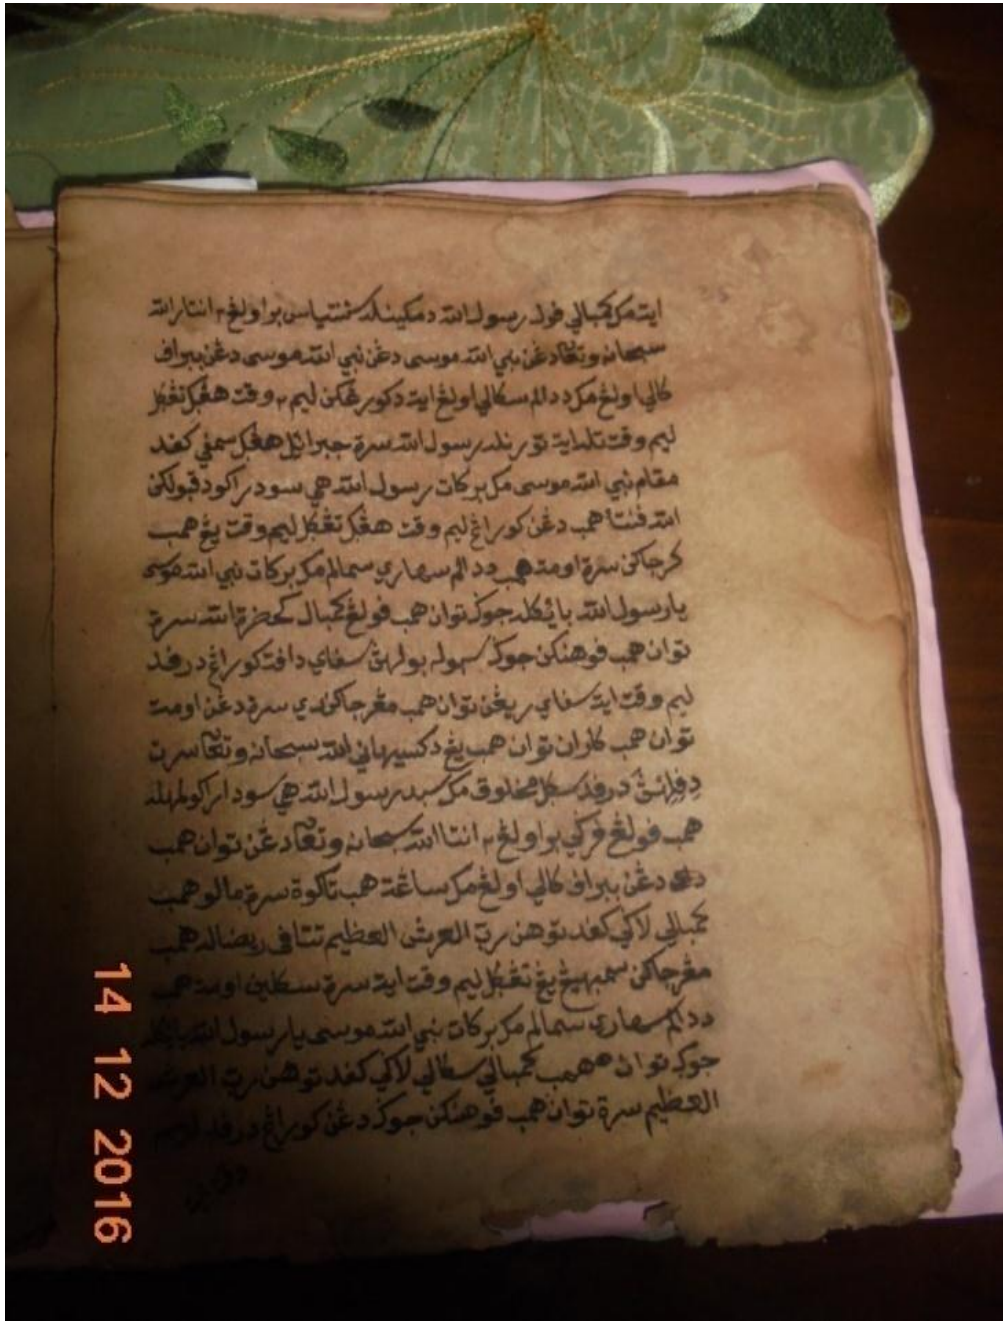 ايت مک کمبالي فول رسول الله دمکينله سنتياس براولڠ٢ انتار الله
سبحانه وتعالى دڠن نبي الله موسى دڠن نبي الله موسى دڠن ببراف
کالي اولڠ مک ددالم سکالي اولڠ ايت دکورڠکن ليم٢ وقت هڠݢ تڠݢل
ليم وقت تله ايت تورنله رسول الله سرة جبرائيل هڠݢ سمفي کفد
مقام نبي الله موسى مک برکات رسول الله هي سودراکو دقبولکن
الله فنتا همب دڠن کورڠ ليم وقت هڠݢ تڠݢل ليم وقت يڠ همب
کرجاکن سرة اومة همب ددالم سهاري سمالم مک برکات نبي الله موسى
يارسول الله بايکله جوک توان همب فولڠ کمبال کحضرة الله سرة
توان همب فوهنکن جوک سبوله بولهڽ سفاي دافت کورڠ درفد
ليم وقت ايت سفاي ريڠن توان همب مڠرجاکندي سرة دڠن اومة
توان همب کارن توان همب يڠ دکسيهاني الله سبحانه وتعالى سرت
دفيلهڽ درفد سکل مخلوق مک سبد رسول الله هي سودراکو تله
همب فولڠ فرکي براولڠ٢ انتا الله سبحانه وتعالى دڠن توان همب
دڠن ببراف کالي اولڠ مک ساڠت همب تاکوة سرة مالو همب
کمبالي لاکي کفد توهن رب العرش العظيم تتافي رضاله همب
مڠرجاکن سمبهيڠ يڠ تڠݢل ليم وقت ايت سرة سکلين اومة همب
ددالم سهاري سمالم مک برکات نبي الله موسى يارسول الله بايکله
جوک توان همب کمبالي سکالي لاکي کفد توهن رب العرش
العظيم سرة توان همب فوهنکن جوک دڠن کورڠ درفد ليم
14 12 2016